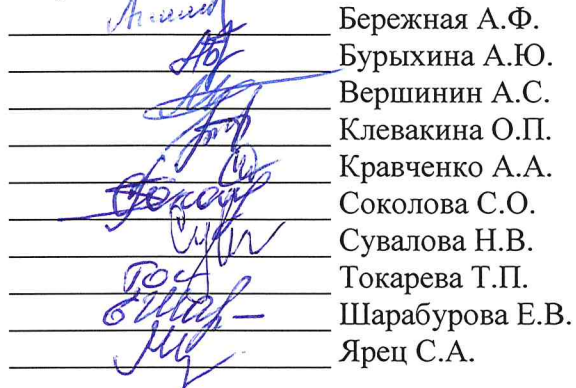 Бережная А.Ф.
Бурыхина А.Ю.
Вершинин А.С.
Клевакина О.П.
Кравченко А.А.
Соколова С.О.
Сувалова Н.В.
Токарева Т.П.
Шарабурова Е.В.
Ярец С.А.